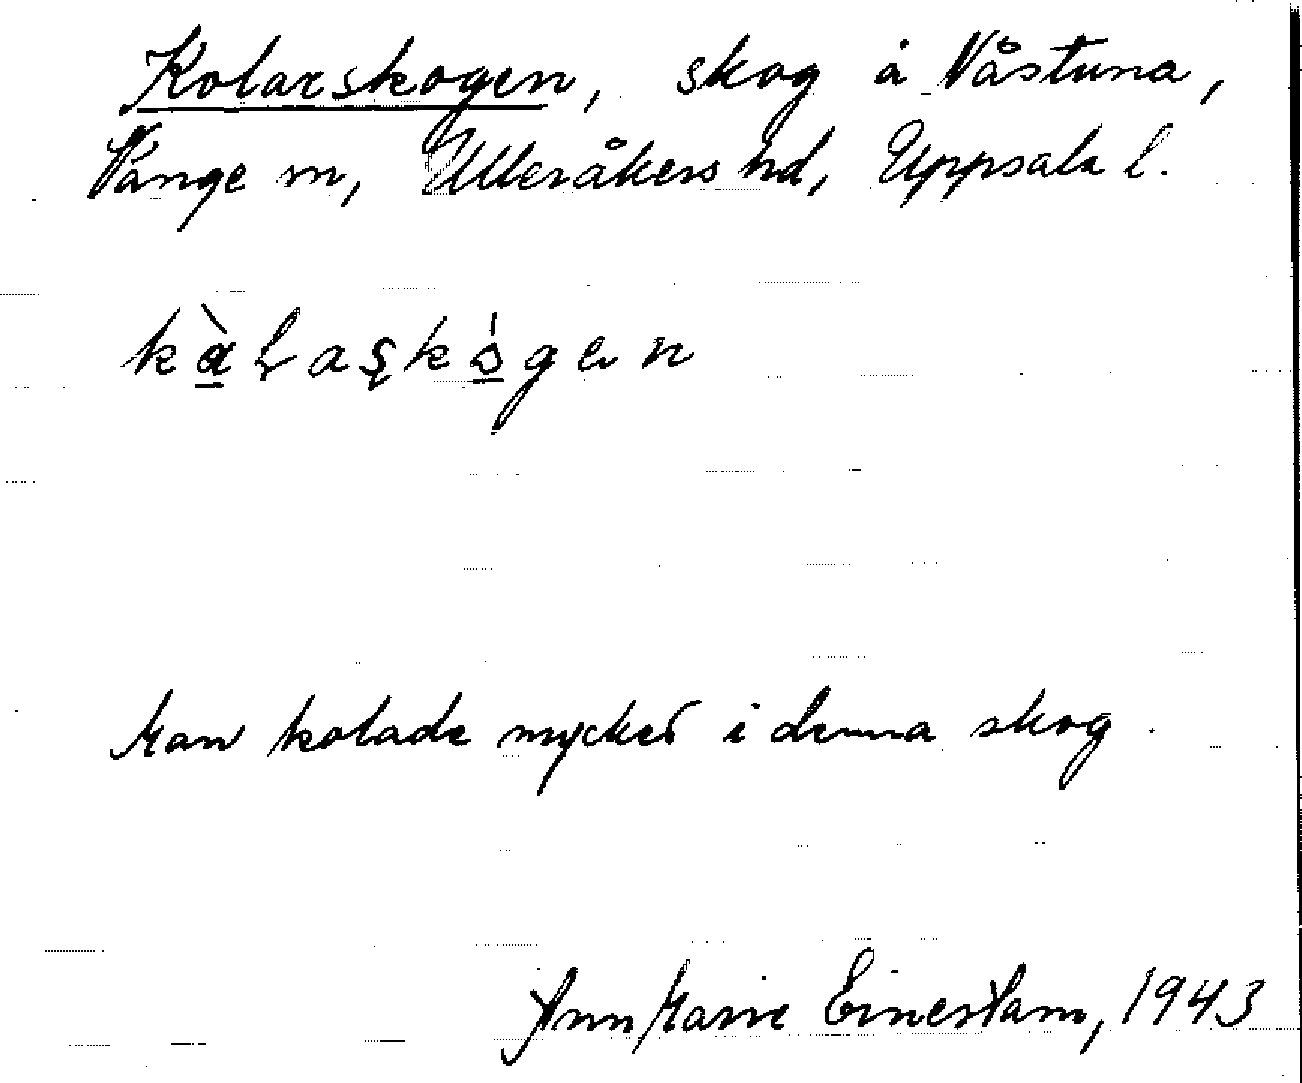 Kolarskogen, skog å Våstuna,
Vänge sn, Ulleråkers hd, Uppsala l.
kàlaskógen
Man kolade mycket i denna skog.
Ann Marie Einerstam, 1943